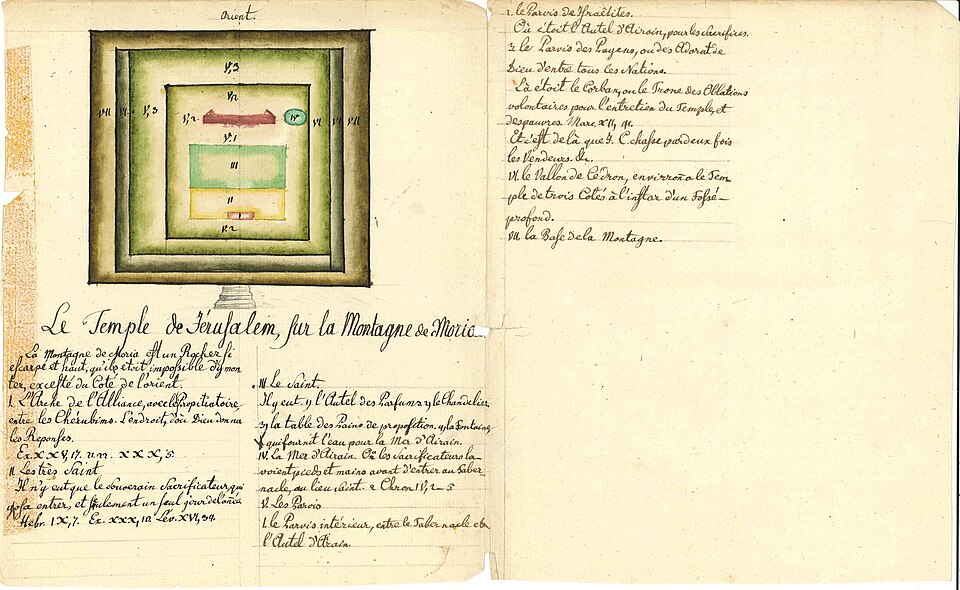 Orient.
V,3
V,2
V,2
IV
VII
VI
V,3
VI
V
VII
V,1
III
II
I
V,2
Le Temple de Jérusalem, sur la Montagne de Moria
La Montagne de Moria est un Rocher si
escarpé et haut, qu'il etoit impossible d'y mon
ter, excepté du Coté de l'orient.
I. L'Arche de l'Alliance, avec le Propitiatoire
entre les Chérubims. L'endroit, d'où Dieu donna
les Reponses.
Ex. XXV, 17. 21. 22. XXX, 5
II. Les très Saint
Il n'y eut que le souverain Sacrificateur, qui
osa entrer, et seulement un seul jour de l'année
Hebr. IX, 7. Ex. XXX, 10. Lév. XVI, 34.
III. Le Saint.
Il y eut 1) l'Autel des Parfums 2) le Chandelier
3) la table des Pains de proposition. 4) la Fontaine,
qui fournit l'eau pour la Mer d'Airain.
IV. La Mer d'Airain. Où les Sacrificateurs la-
voient pieds et mains avant d'entrer au Taber
nacle, au lieu saint. 2 Chron IV, 2-5
V. Les Parvis
1. le Parvis intérieur, entre le Tabernacle et
l'Autel d'Airain.
2. le Parvis de Israëlites.
Où étoit l'Autel d'Airain, pour les sacrifices.
3. le Parvis des Payens, ou des Adorat de
Dieu d'entre tous les Nations.
Là étoit le Corban, ou le Trone des Oblations
volontaires pour l'entretien du Temple, et
des pauvres. Marc XII, 41.
Et c'est de là que J. C. chassa par deux fois
les Vendeurs. &c.
VI. le Vallon de Cédron, environna le Tem
ple de trois Cotés à l'instar d'un Fossé
profond.
VII. la Base de la Montagne.